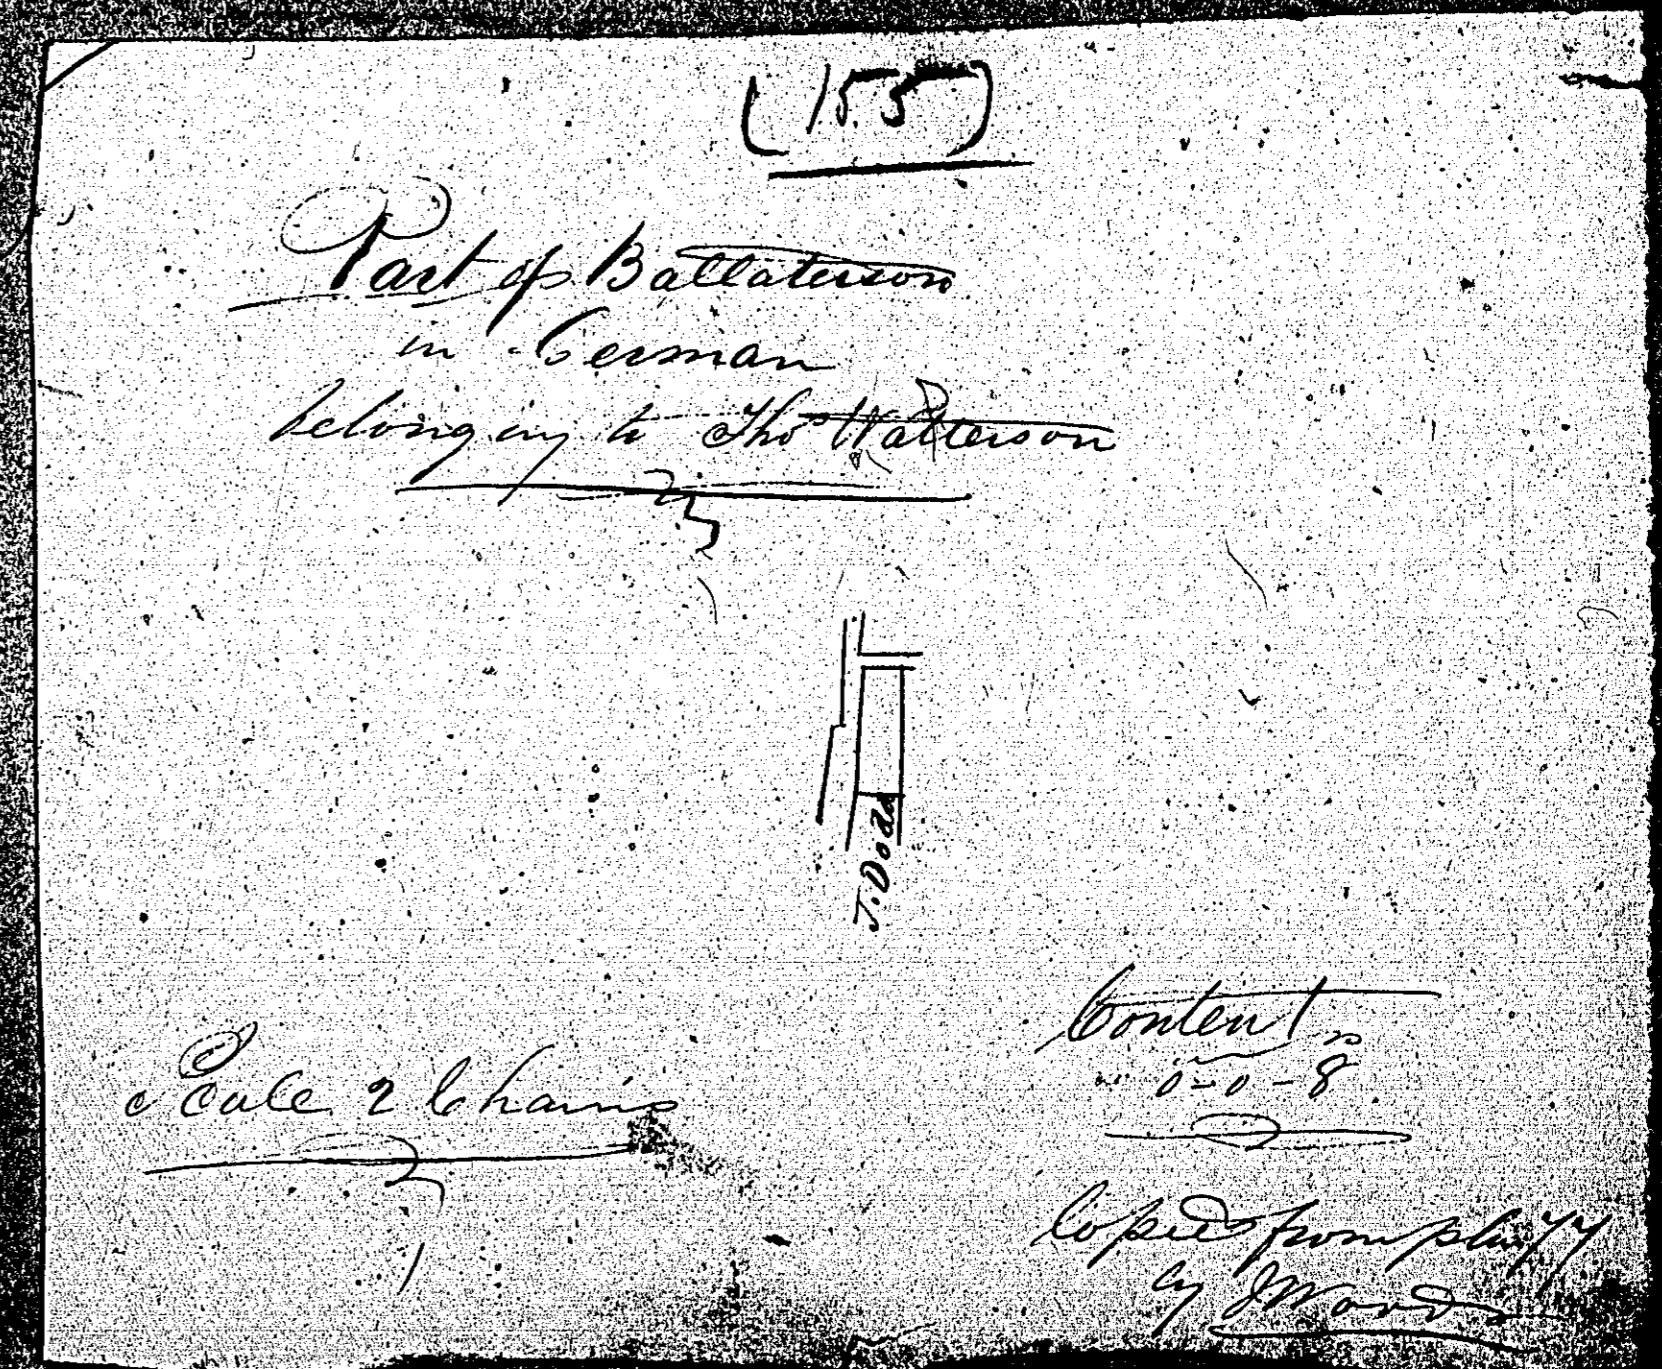 (155)
Part of Ballaterson
in German
belonging to Thos Watterson
J. Dodd
Scale 2 Chains
Content
0-0-8
Copied from plan 77
by J Woods